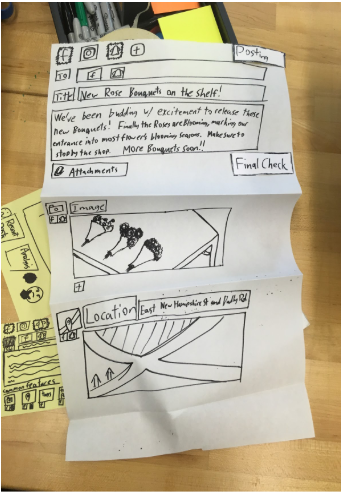 Posting
To
Title New Rose Bouquets on the shelf!
We've been budding w/ excitement to release these
new Bouquets! Finally the Roses are blooming, marking our
entrance into most flower's blooming seasons. Make sure to
stop by the shop. More Bouquets soon!!
Attachments
Final Check
Image
Location East New Hampshire St and
Recent
common features